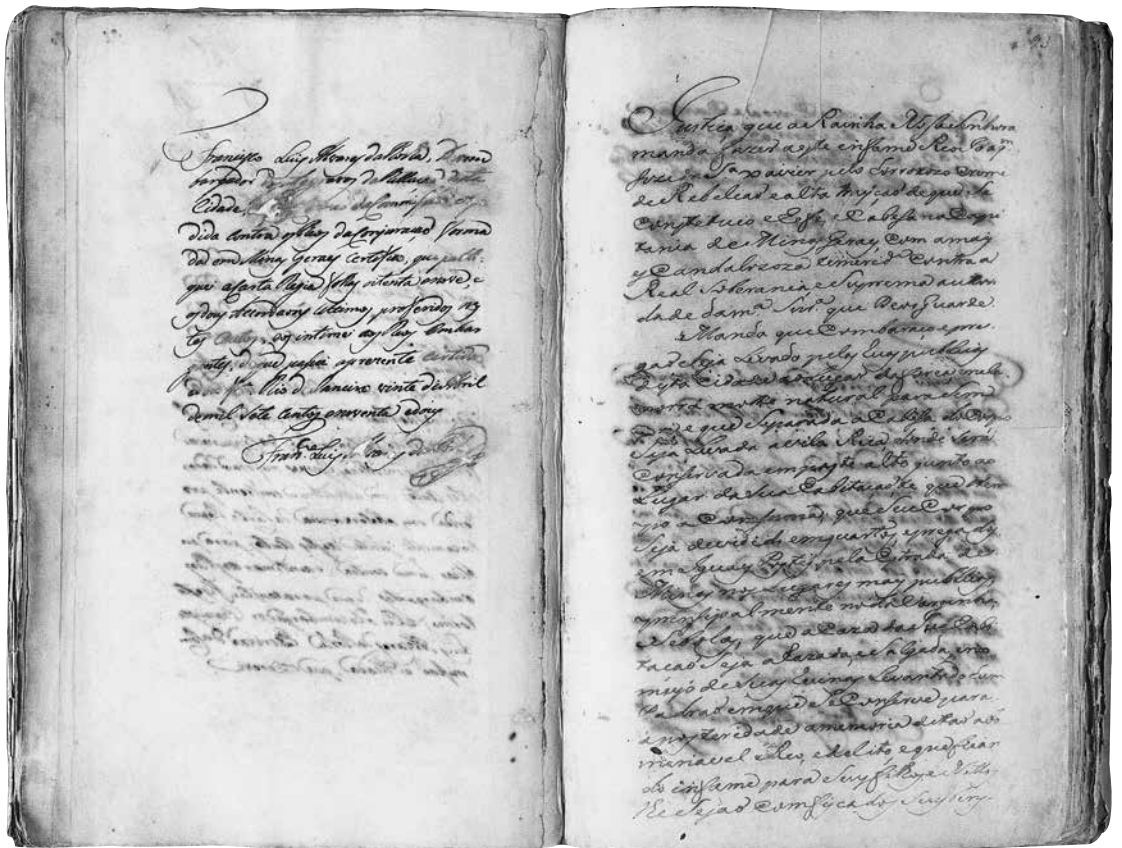 Francisco Luis Alvares da Rocha, Dezem
bargador dos Aggravos da Rellação desta
Cidade,
dida contra os Reos da Conjuração forma
da em Minas Geraes Certefico, que publi-
quei a Carta Regia folhas oitenta e nove, e
os dous
tes autos, e os intimei aos Reos
de que passei a prezente certidão
Rio de Janeiro vinte de Abril
de mil Sete Centos e noventa e dous
Fran.co Luis
93
Justica que a Rainha Nosa Senhora
manda fazer a este infame Reo Joaq.m
Jozé da S.a xavier pelo horrorozo Crime
de Rebeliao e alta treição de que se
Constetuio e Xefe e Cabesa na Capi
tania de Minas Geray Com a may
y Candaloza temerid.e Contra a
Real Soberania e Suprema autori
dade da m.a Snr.a que Deos guarde
Manda que Com baraco e pre
gaõ seja Levado pelas Ruas publicas
desta Cidade ao Lugar da forca e nela
morra morte natural para Sem
e que Separada a Cabesa do Corpo
Seja Levada a vila Rica donde Sera
Conservada em poste alto junto ao
Lugar da Sua Habitacaõ, e que
a Consuma, que Seu Corpo
Seja devidido em quartos, e pregados
em iguays Postes pela Estrada de
Minas nos Lugares mays publicos
prensipalmente no da Varginha,
e Sebolas, que a Caza da Sua Habi
tacaõ Seja a Razada, e Salgada, e no
meyo de Suas Ruinas Levantado hum
Padraõ em que Se Conserve para
a posteridade a memoria de taõ abo
minavel Reo, e delito, e que fican
do infame para Seus filhos, e Netos
lhe Sejaõ Comfiscados Seus bens